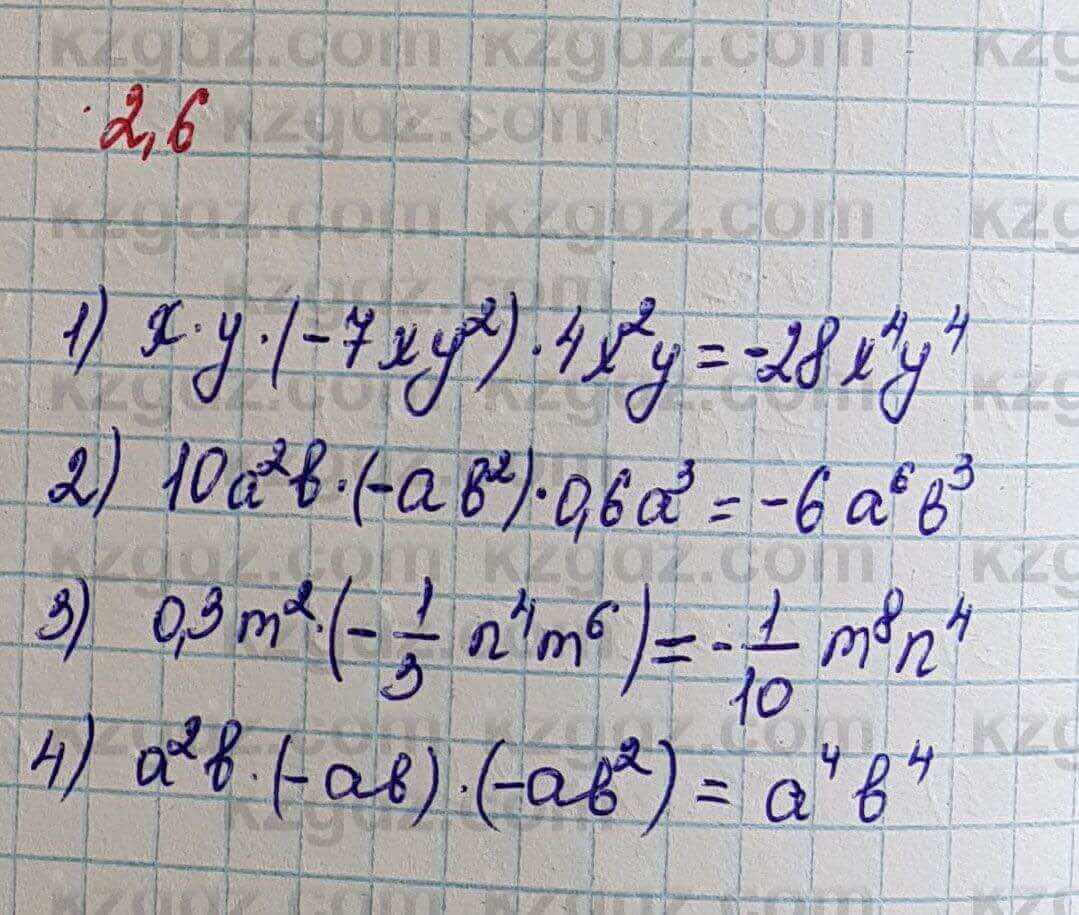 kzgdz.com kzgdz.com kzgdz.com
2,6
1) x·y·(-7xy²)·4x²y=-28x⁴y⁴
2) 10a²b·(-ab²)·0,6a³=-6a⁶b³
3) 0,3m²·(-1/3 n⁴m⁶)=-1/10 m⁸n⁴
4) a²b·(-ab)·(-ab²)=a⁴b⁴